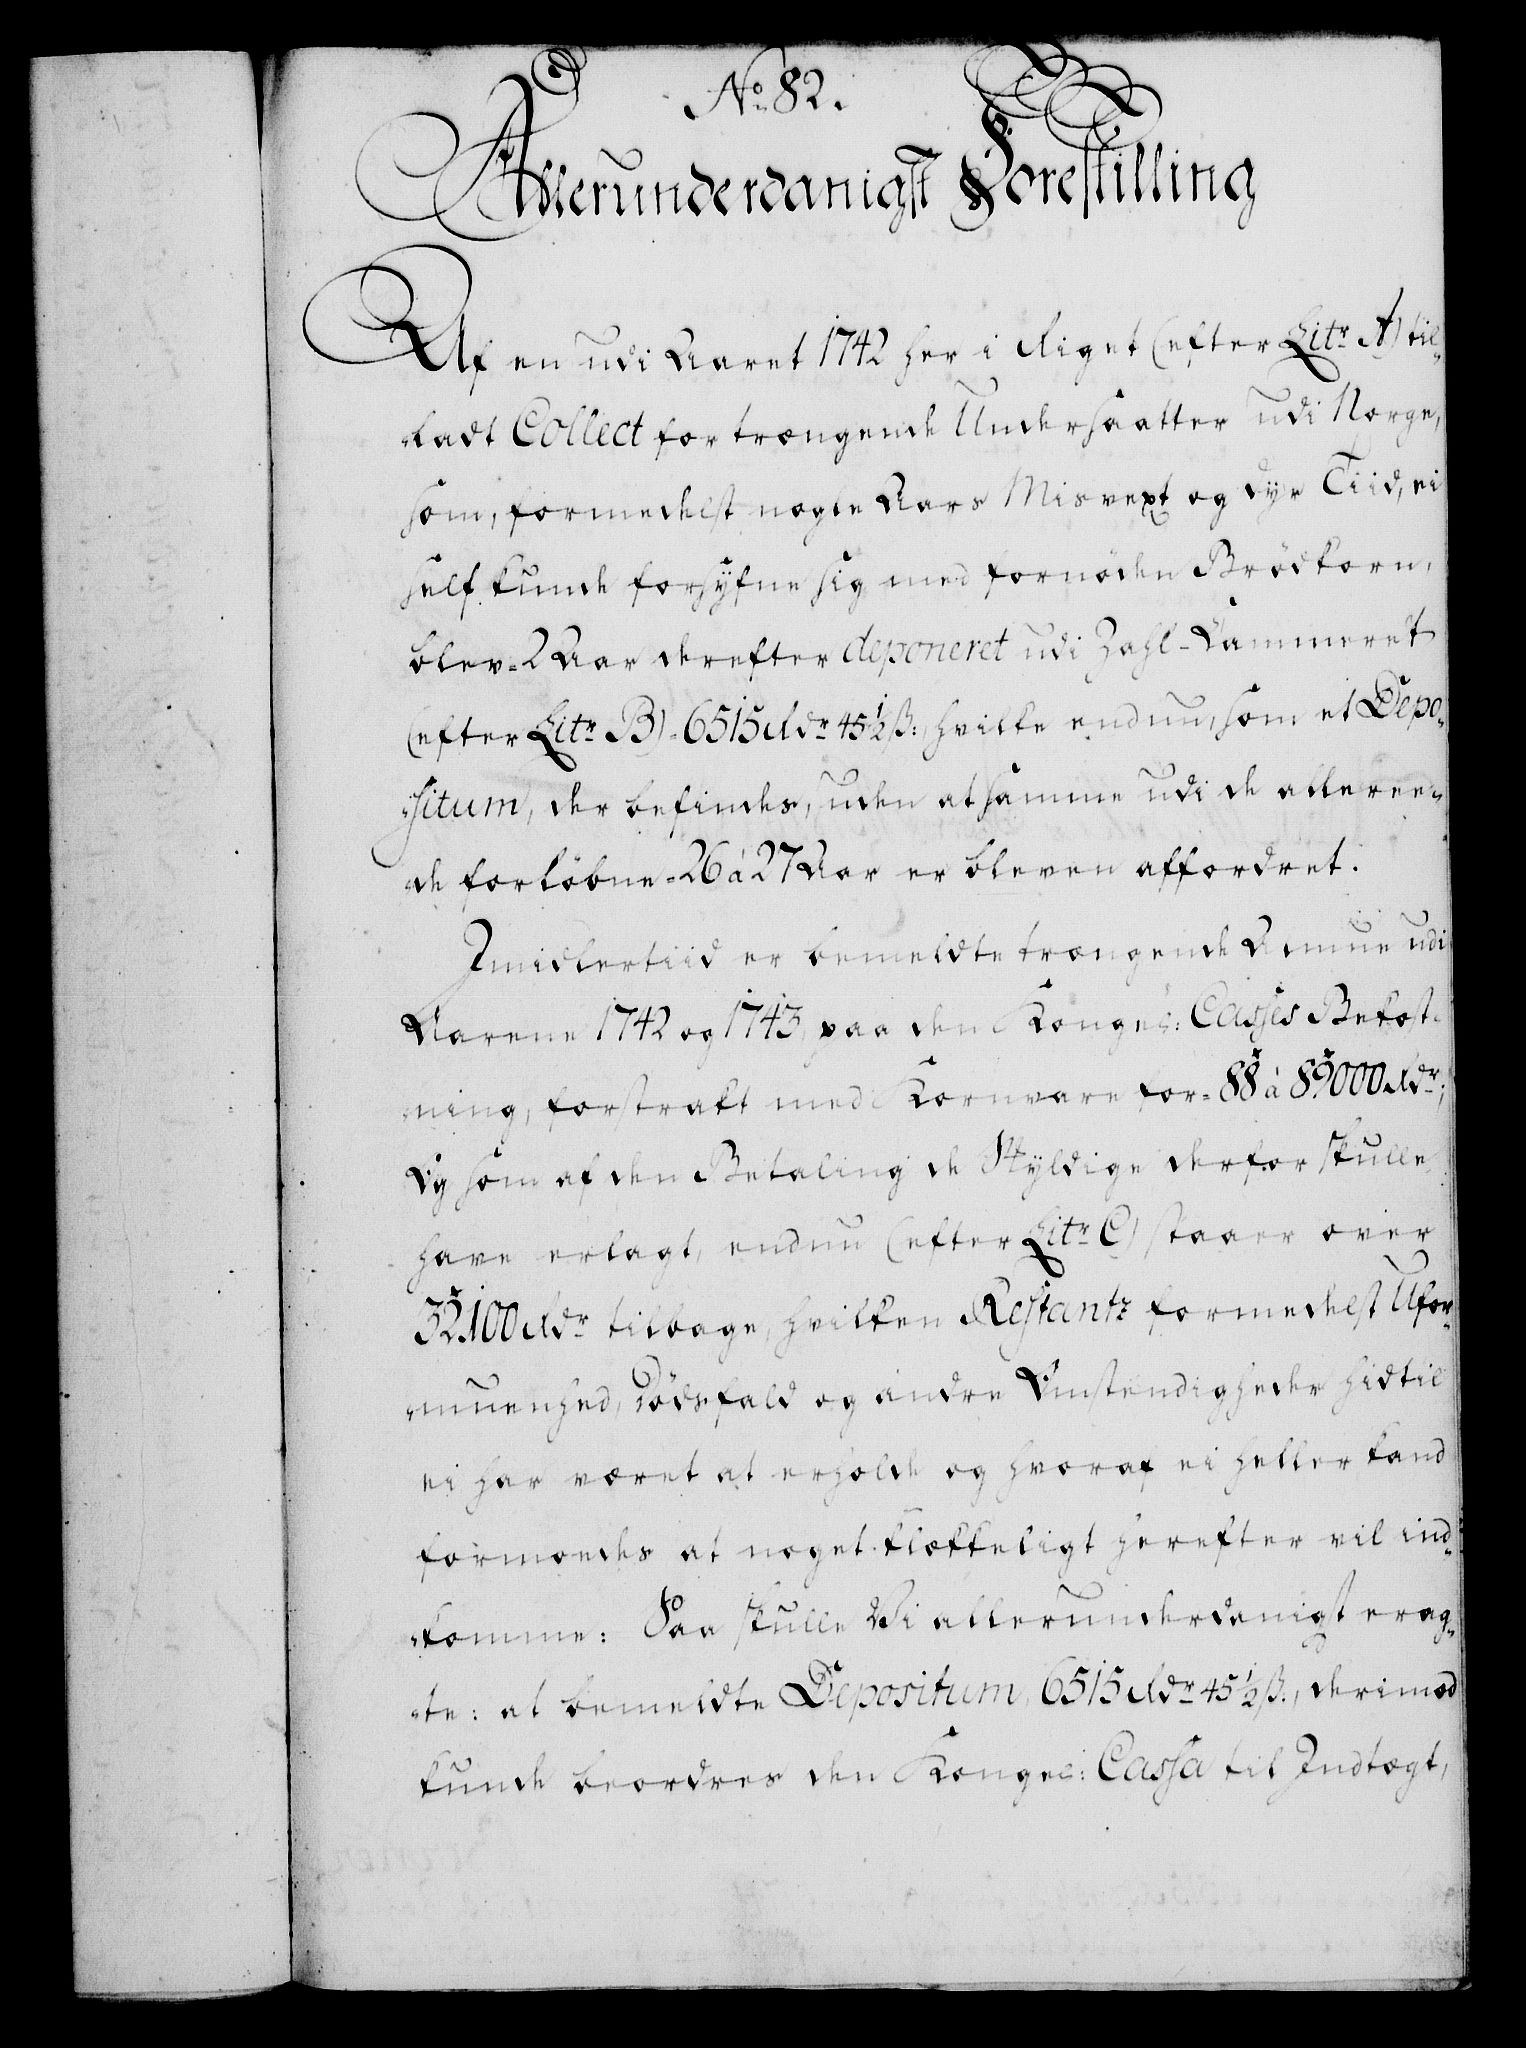 No 82.
Allerunderdanigst Forestilling
Af en udi Aaret 1742 her i Riget (efter Litr A) til-
ladt Collect for trængende Undersaatter udi Norge,
som, formedelst nogle Aars Misvext og dyr Tiid, ei
self kunde forsyfne sig med fornöden Brödkorn,
blev 2 Aar derefter deponeret udi Zahl-Kammeret
(efter Litr B) 6515 Rdr 45½ ß:, hvilke endnu, som et Depo-
situm, der befindes, uden at samme udi de alleree-
de forlöbne 26 à 27 Aar er bleven affordret.
Imidlertiid er bemeldte trængende Almue udi
Aarene 1742 og 1743, paa den Kongel: Casses Bekost-
ning, forstrakt med Kornvare for 88 à 89000 Rdr;
Og som af den Betaling de Skyldige derfor skulle
have erlagt, endnu (efter Litr C) staaer over
32100 Rdr tilbage, hvilken Restantz formedelst Ufor-
muenhed, Dödsfald og andre Omstendigheder hidtil
ei har været at erholde og hvoraf ei heller kand
formodes at noget klækkeligt herefter vil ind-
komme: Saa skulle Vi allerunderdanigst erag-
te: at bemeldte Depositum, 6515 Rdr 45½ ß., derimod
kunde beordres den Kongel: Cassa til Indtægt,